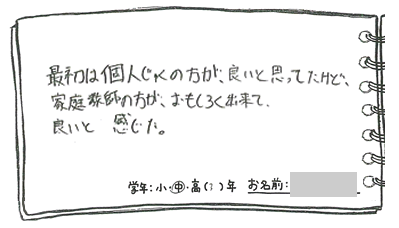 最初は個人じゅくの方が、良いと思ってたけど、
家庭教師の方が、おもしろく出来て、
良いと 感じた。
学年:小・中・高(3)年 お名前: